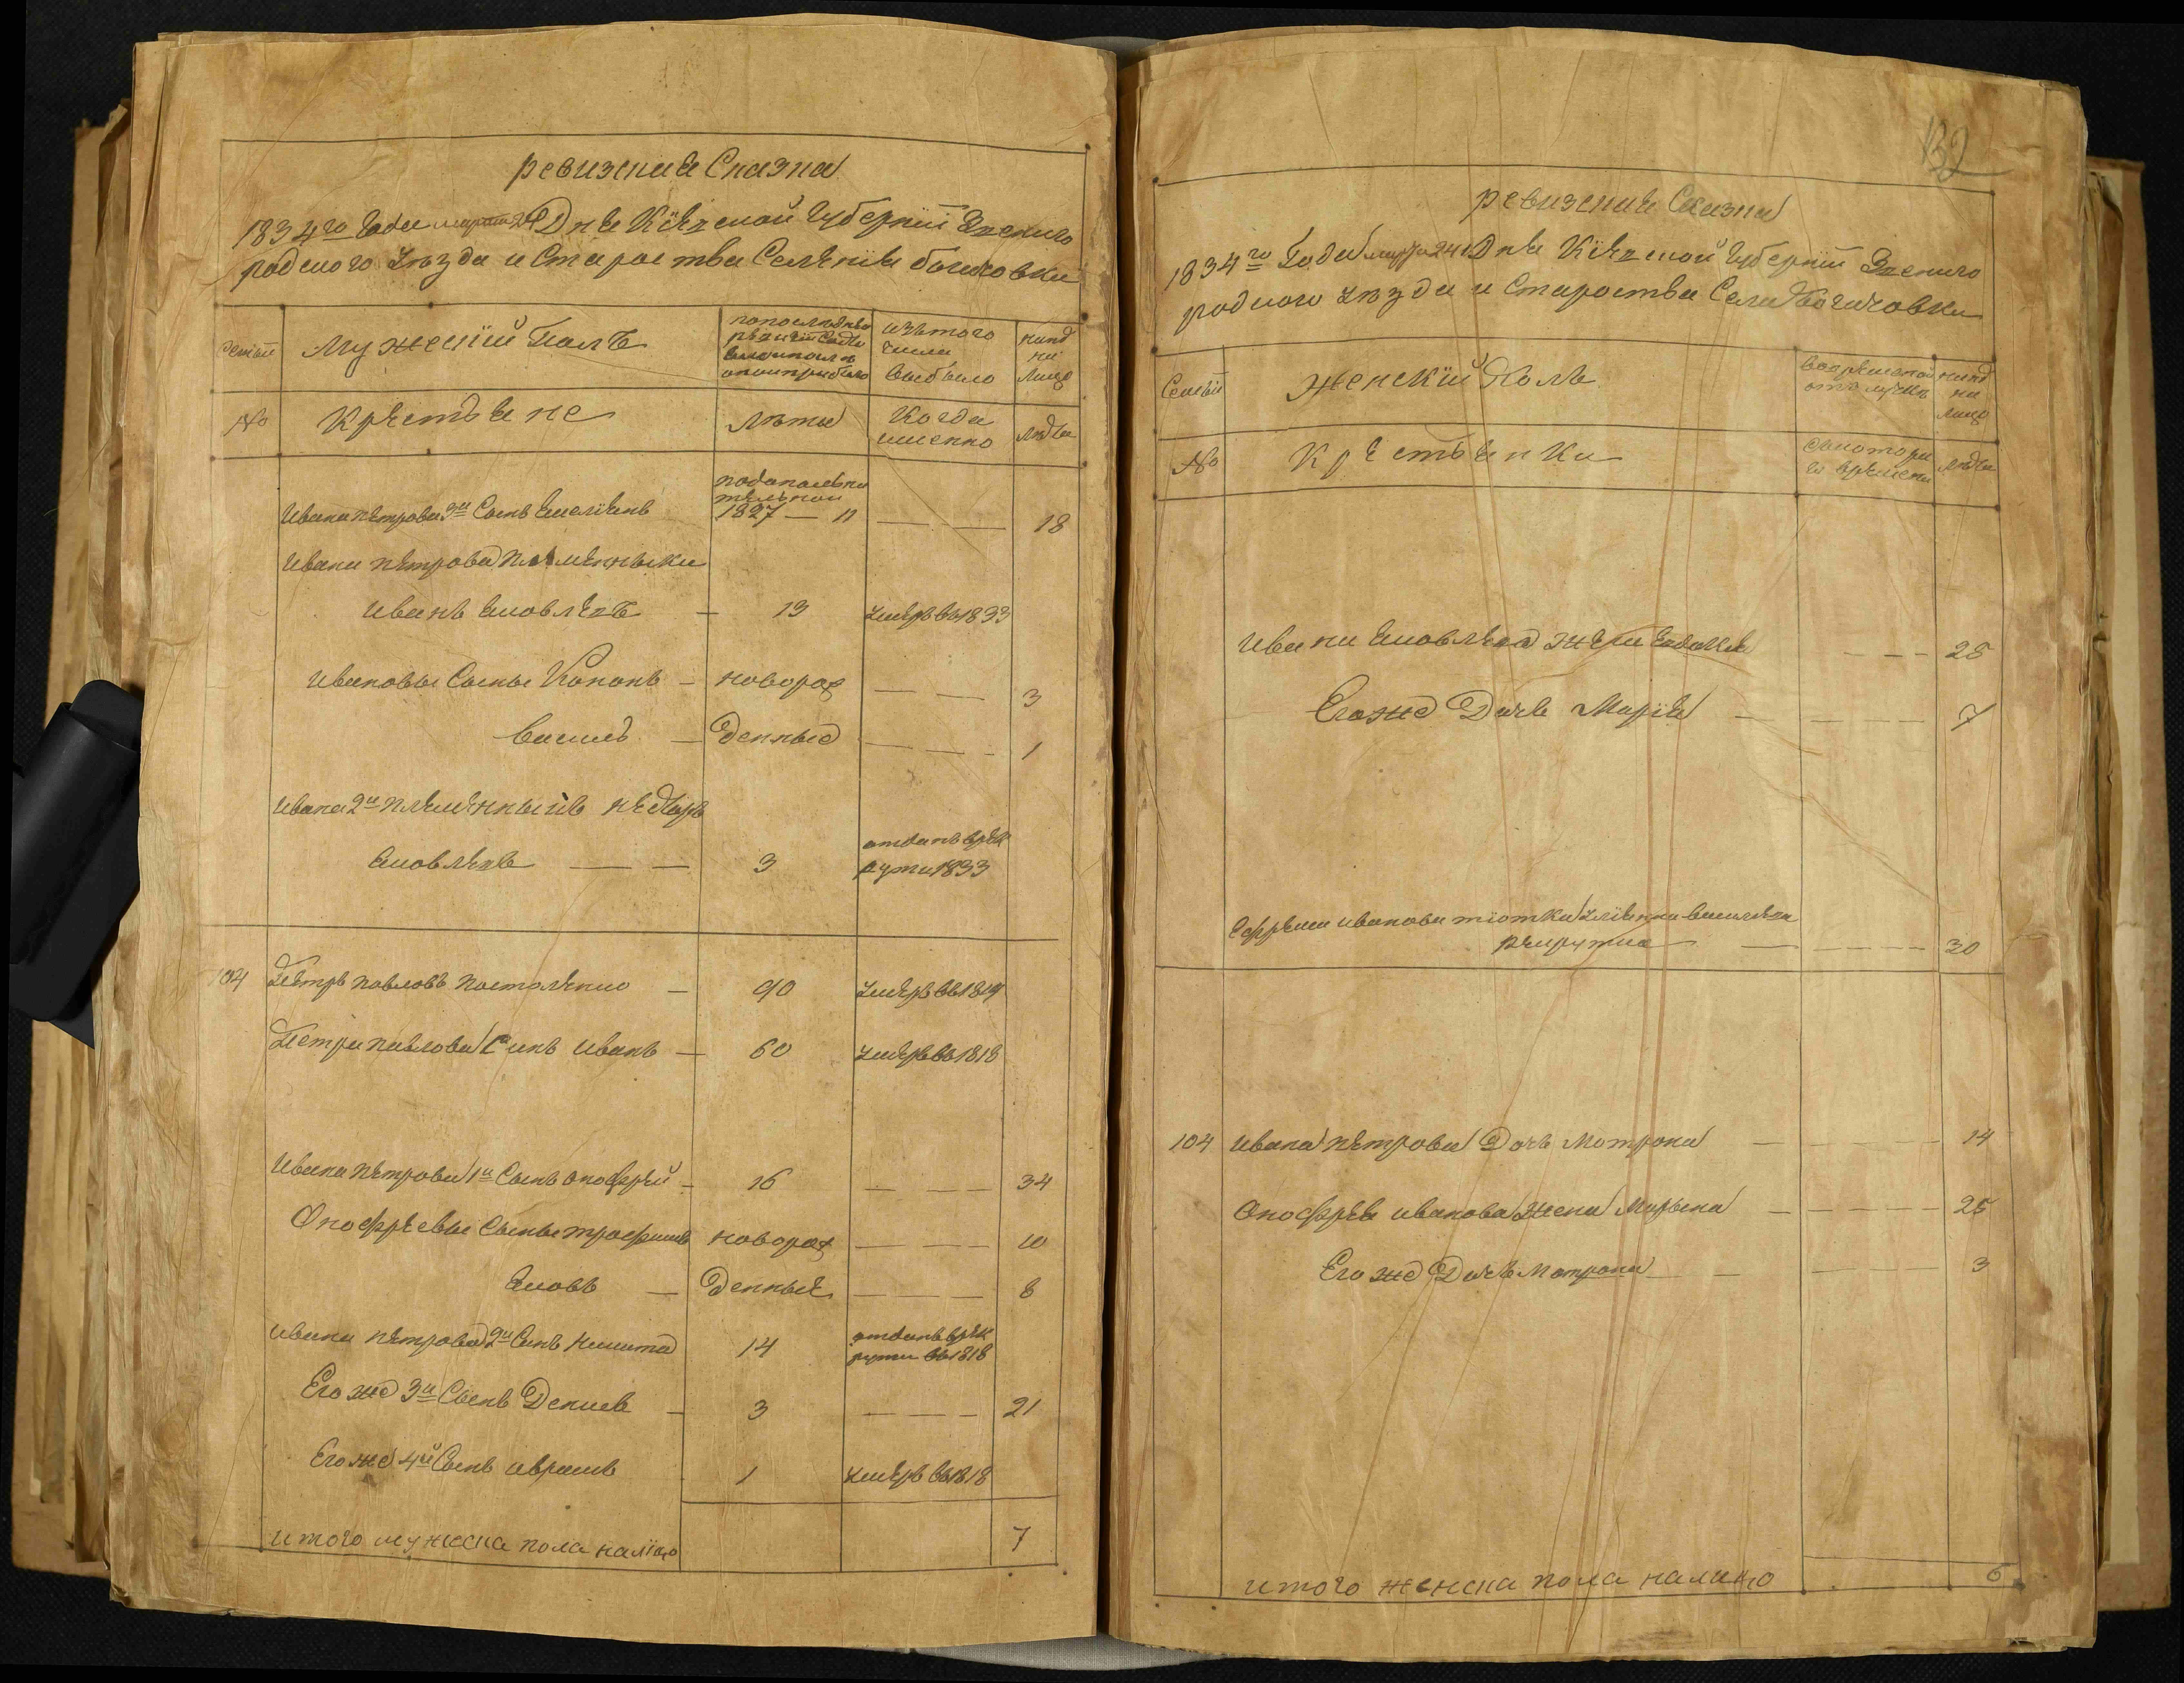 ревизская Сказка
1834го Года марта 24 Дня Кіевской Губерніи Звениго
родского уезда и Староства Селенія богачовки
Семьи
Мужескій Полъ
по последней
ревизіи состо
яло и после
оной прибыло
изъ того
числа
выбыло
нинѣ
на
лицо
№
Крестьяне
Лѣта
Когда
именно
Лѣта
по дополни
тельной
Ивана Петрова 3й Сынъ Емеліянъ
1827 — 11
18
Ивана Петрова племѣнныки
Иванъ Яковлевъ — 13
умеръ въ 1833
Ивановы Сыны Кононъ — новорож
3
Василь — денные
1
Ивана 2й племѣнныкъ Нѣчыпоръ
Яковлевъ
3
отданъ в рек
руты 1833
104 Петръ Павловъ Постоленко — 90
умеръ въ 1819
Петра Павлова Синъ Иванъ — 60
умеръ въ 1818
Ивана Петрова 1й Сынъ Онофрѣй — 16
34
Онофрѣевы Сыны Трофимъ новорож
10
Яковъ — денные
8
Ивана Петрова 2й Синъ Никита 14
отданъ в рек
руты въ 1818
Его же 3й Сынъ Денисъ — 3
21
Его же 4й Сынъ Аврамъ 1
умеръ въ 1818
итого мужеска пола налицо
7
132
ревизская Сказка
1834го Года марта 24 Дня Кіевской Губерніи Звениго
родского уезда и Староства Села Богачовки
Семьи
Женскій Полъ
во временной
отлучкѣ
нинѣ
на
лицо
№
Крестьянки
съ котора
го времени
Лѣта
Ивана Яковлева Жена Евдокия
28
Его же Дочь Марія
7
Ефрема Иванова тіотка Уліянна Василева
рекрутка
30
104 Ивана Петрова Дочь Мотрона
14
Онофрѣя Иванова Жена Марына
25
Его же Дочь Мотрона
3
итого женска пола налицо
6